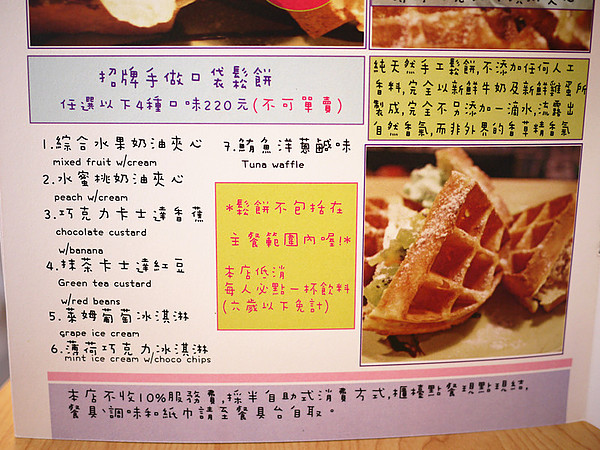 招牌手做口袋鬆餅
任選以下4種口味220元(不可單賣)
純天然手工鬆餅,不添加任何人工
香料,完全以新鮮牛奶及新鮮雞蛋所
製成,完全不另添加一滴水,流露出
自然香氣,而非外界的香草精香氣
1.綜合水果奶油夾心
mixed fruit w/cream
2.水蜜桃奶油夾心
peach w/cream
3.巧克力卡士達香蕉
chocolate custard
w/banana
4.抹茶卡士達紅豆
Green tea custard
w/red beans
5.萊姆葡萄冰淇淋
grape ice cream
6.薄荷巧克力冰淇淋
mint ice cream w/choco chips
7.鮪魚洋蔥鹹味
Tuna waffle
*鬆餅不包括在
主餐範圍內喔!*
本店低消
每人必點一杯飲料
(六歲以下免計)
本店不收10%服務費,採半自助式消費方式,櫃檯點餐現點現結,
餐具、調味和紙巾請至餐具台自取。